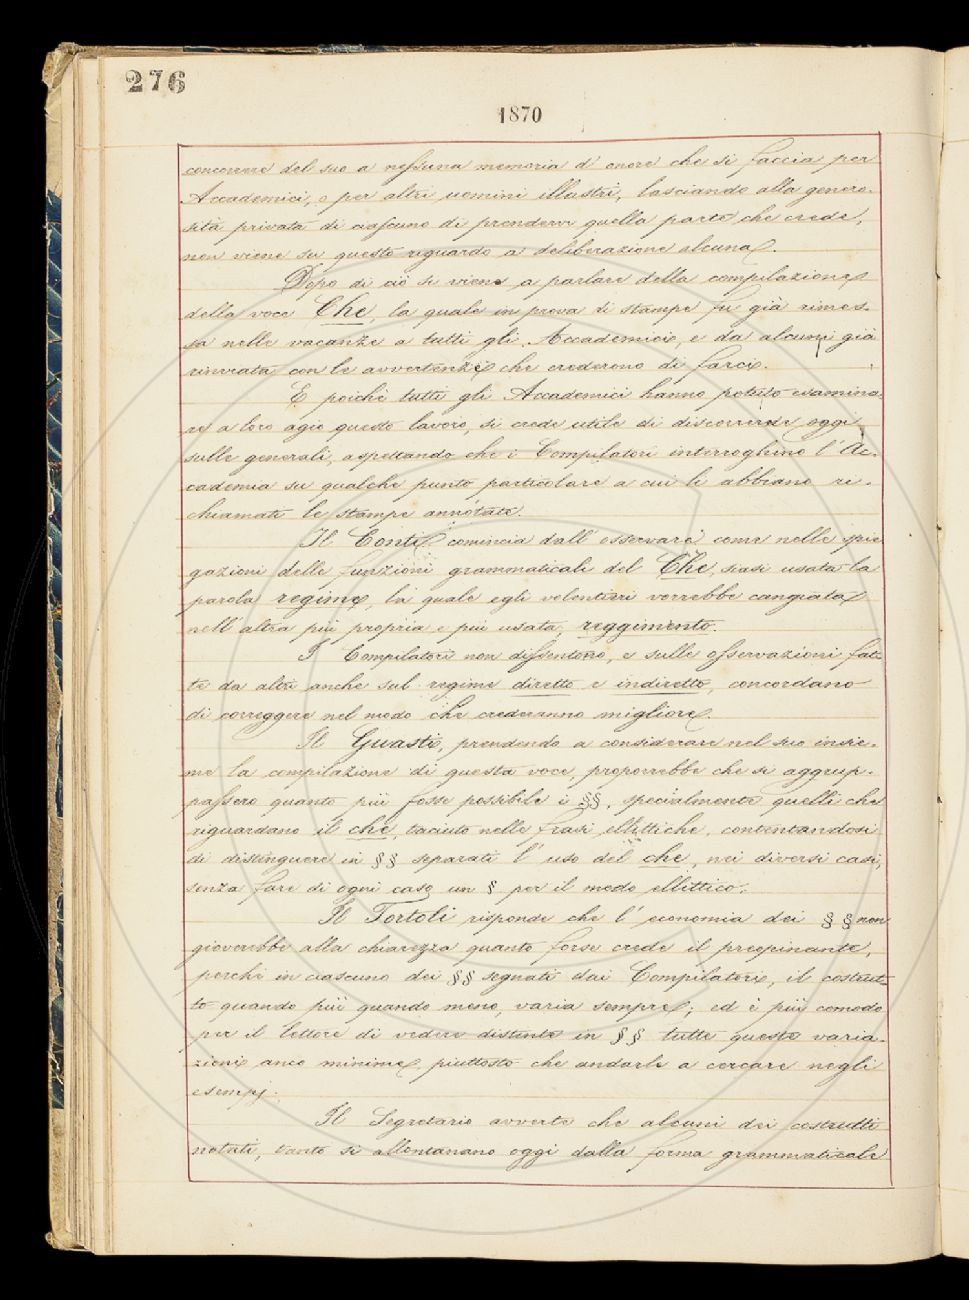 276
1870
concorrere del suo a nessuna memoria d'onore che si faccia per
Accademici, o per altri uomini illustri, lasciando alla genero-
sità privata di ciascuno di prendervi quella parte che crede,
non viene su questo riguardo a deliberazione alcuna.
Dopo di ciò si viene a parlare della compilazione
della voce Che, la quale in prova di stampe fu già rimes-
sa nelle vacanze a tutti gli Accademici, e da alcuni già
rinviata con le avvertenze che crederono di farci.
E poichè tutti gli Accademici hanno potuto esamina-
re a loro agio questo lavoro, si crede utile di discorrere oggi
sulle generali, aspettando che i Compilatori interroghino l'Ac-
cademia su qualche punto particolare a cui li abbiano ri-
chiamati le stampe annotate.
Il Conti comincia dall'osservare come nelle spie
gazioni delle funzioni grammaticali del Che, siasi usata la
parola regime, la quale egli volentieri vorrebbe cangiata
nell'altra più propria e più usata, reggimento.
I Compilatori non dissentono, e sulle osservazioni fat-
te da altri anche sul regime diretto e indiretto, concordano
di correggere nel modo che crederanno migliore.
Il Guasti, prendendo a considerare nel suo insie-
me la compilazione di questa voce, proporrebbe che si aggrup-
passero quanto più fosse possibile i §§, specialmente quelli che
riguardano il che, taciuto nelle frasi ellittiche, contentandosi
di distinguere in §§ separati l'uso del che, nei diversi casi,
senza fare di ogni caso un § per il modo ellittico.
Il Tortoli risponde che l'economia dei §§ non
gioverebbe alla chiarezza quanto forse crede il preopinante,
perchè in ciascuno dei §§ segnati dai Compilatori, il costrut-
to quando più quando meno, varia sempre; ed è più comodo
per il lettore di vedere distinte in §§ tutte queste varia-
zioni anco minime, piuttosto che andarle a cercare negli
esempj.
Il Segretario avverte che alcuni dei costrutti
notati, tanto si allontanano oggi dalla forma grammaticale